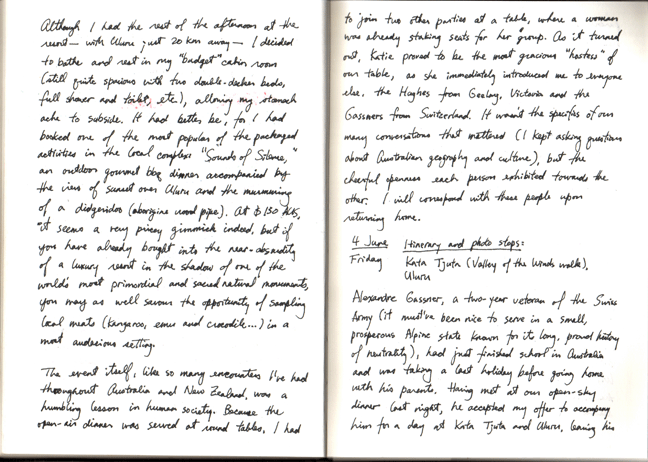 Although I had the rest of the afternoon at the
resort — with Uluru just 20 km away — I decided
to bathe and rest in my "budget" cabin room
(still quite spacious with two double-decker beds,
full shower and toilet, etc.), allowing my stomach
ache to subside. It had better be, for I had
booked one of the most popular of the packaged
activities in the local complex "Sounds of Silence,"
an outdoor gourmet bbq dinner accompanied by
the view of sunset over Uluru and the murmuring
of a didgeridoo (aborigine wood pipe). At $130 AUS,
it seems a very pricey gimmick indeed, but if
you have already bought into the near-absurdity
of a luxury resort in the shadow of one of the
world's most primordial and sacred natural monuments,
you may as well savour the opportunity of sampling
local meats (kangaroo, emu and crocodile...) in a
most audacious setting.
The event itself, like so many encounters I've had
throughout Australia and New Zealand, was a
humbling lesson in human society. Because the
open-air dinner was served at round tables, I had
to join two other parties at a table, where a woman
was already staking seats for her group. As it turned
out, Katie proved to be the most gracious "hostess" of
our table, as she immediately introduced me to everyone
else, the Hughes from Geelong, Victoria and the
Gassners from Switzerland. It wasn't the specifics of our
many conversations that mattered (I kept asking questions
about Australian geography and culture), but the
cheerful openness each person exhibited towards the
other. I will correspond with these people upon
returning home.
4 June Itinerary and photo stops:
Friday Kata Tjuta (Valley of the Winds walk),
Uluru
Alexandre Gassner, a two-year veteran of the Swiss
Army (it must've been nice to serve in a small,
prosperous Alpine state known for its long, proud history
of neutrality), had just finished school in Australia
and was taking a last holiday before going home
with his parents. Having met at our open-sky
dinner last night, he accepted my offer to accompany
him for a day at Kata Tjuta and Uluru, leaving his